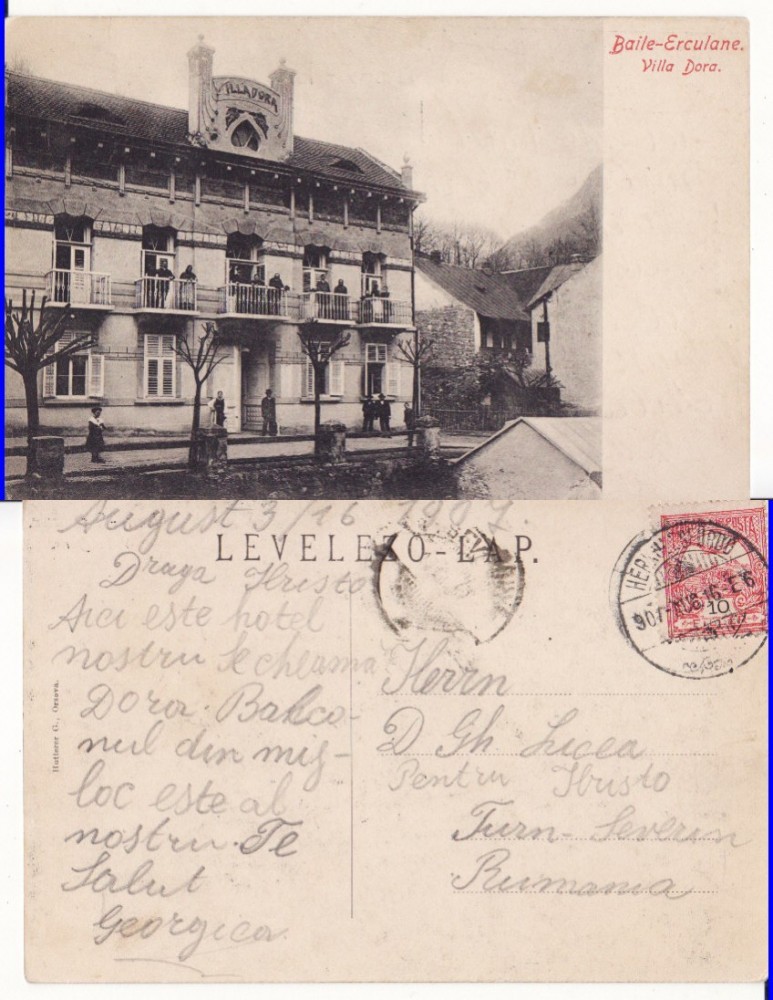 Baile-Erculane.
Villa Dora.
VILLA DORA
August 3/16 1907.
LEVELEZO-LAP.
Draga Hristo
Aici este hotel
nostru Se cheama
Dora. Balco-
nul din mij-
loc este al
nostru. Te
Salut
Georgica
Hutterer G., Orsova.
Herrn
D Gh. Lucea
Pentru Hristo
Turn-Severin
Rumania
907 AUG 16
POSTA
10